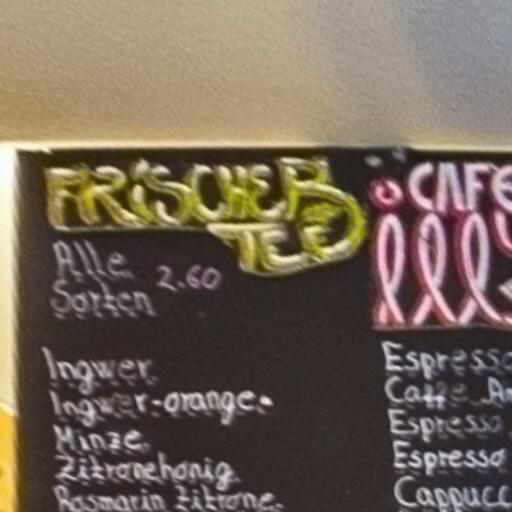 FRISCHER
TEE
Alle
Sorten 2.60
Ingwer
Ingwer-orange
Minze
Zitronehonig
Rosmarin Zitrone
CAFE
illy
Espresso
Caffe
Espresso
Espresso